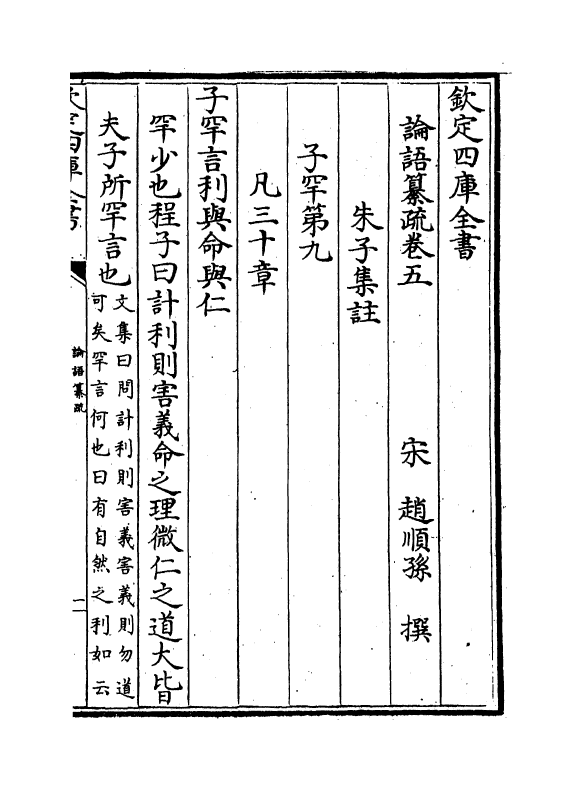 欽定四庫全書
論語纂疏卷五
宋 趙順孫 撰
朱子集註
子罕第九
凡三十章
子罕言利與命與仁
罕少也程子曰計利則害義命之理微仁之道大皆
夫子所罕言也
文集曰問計利則害義害義則勿道
可矣罕言何也曰有自然之利如云
欽定四庫全書
論語纂疏
一